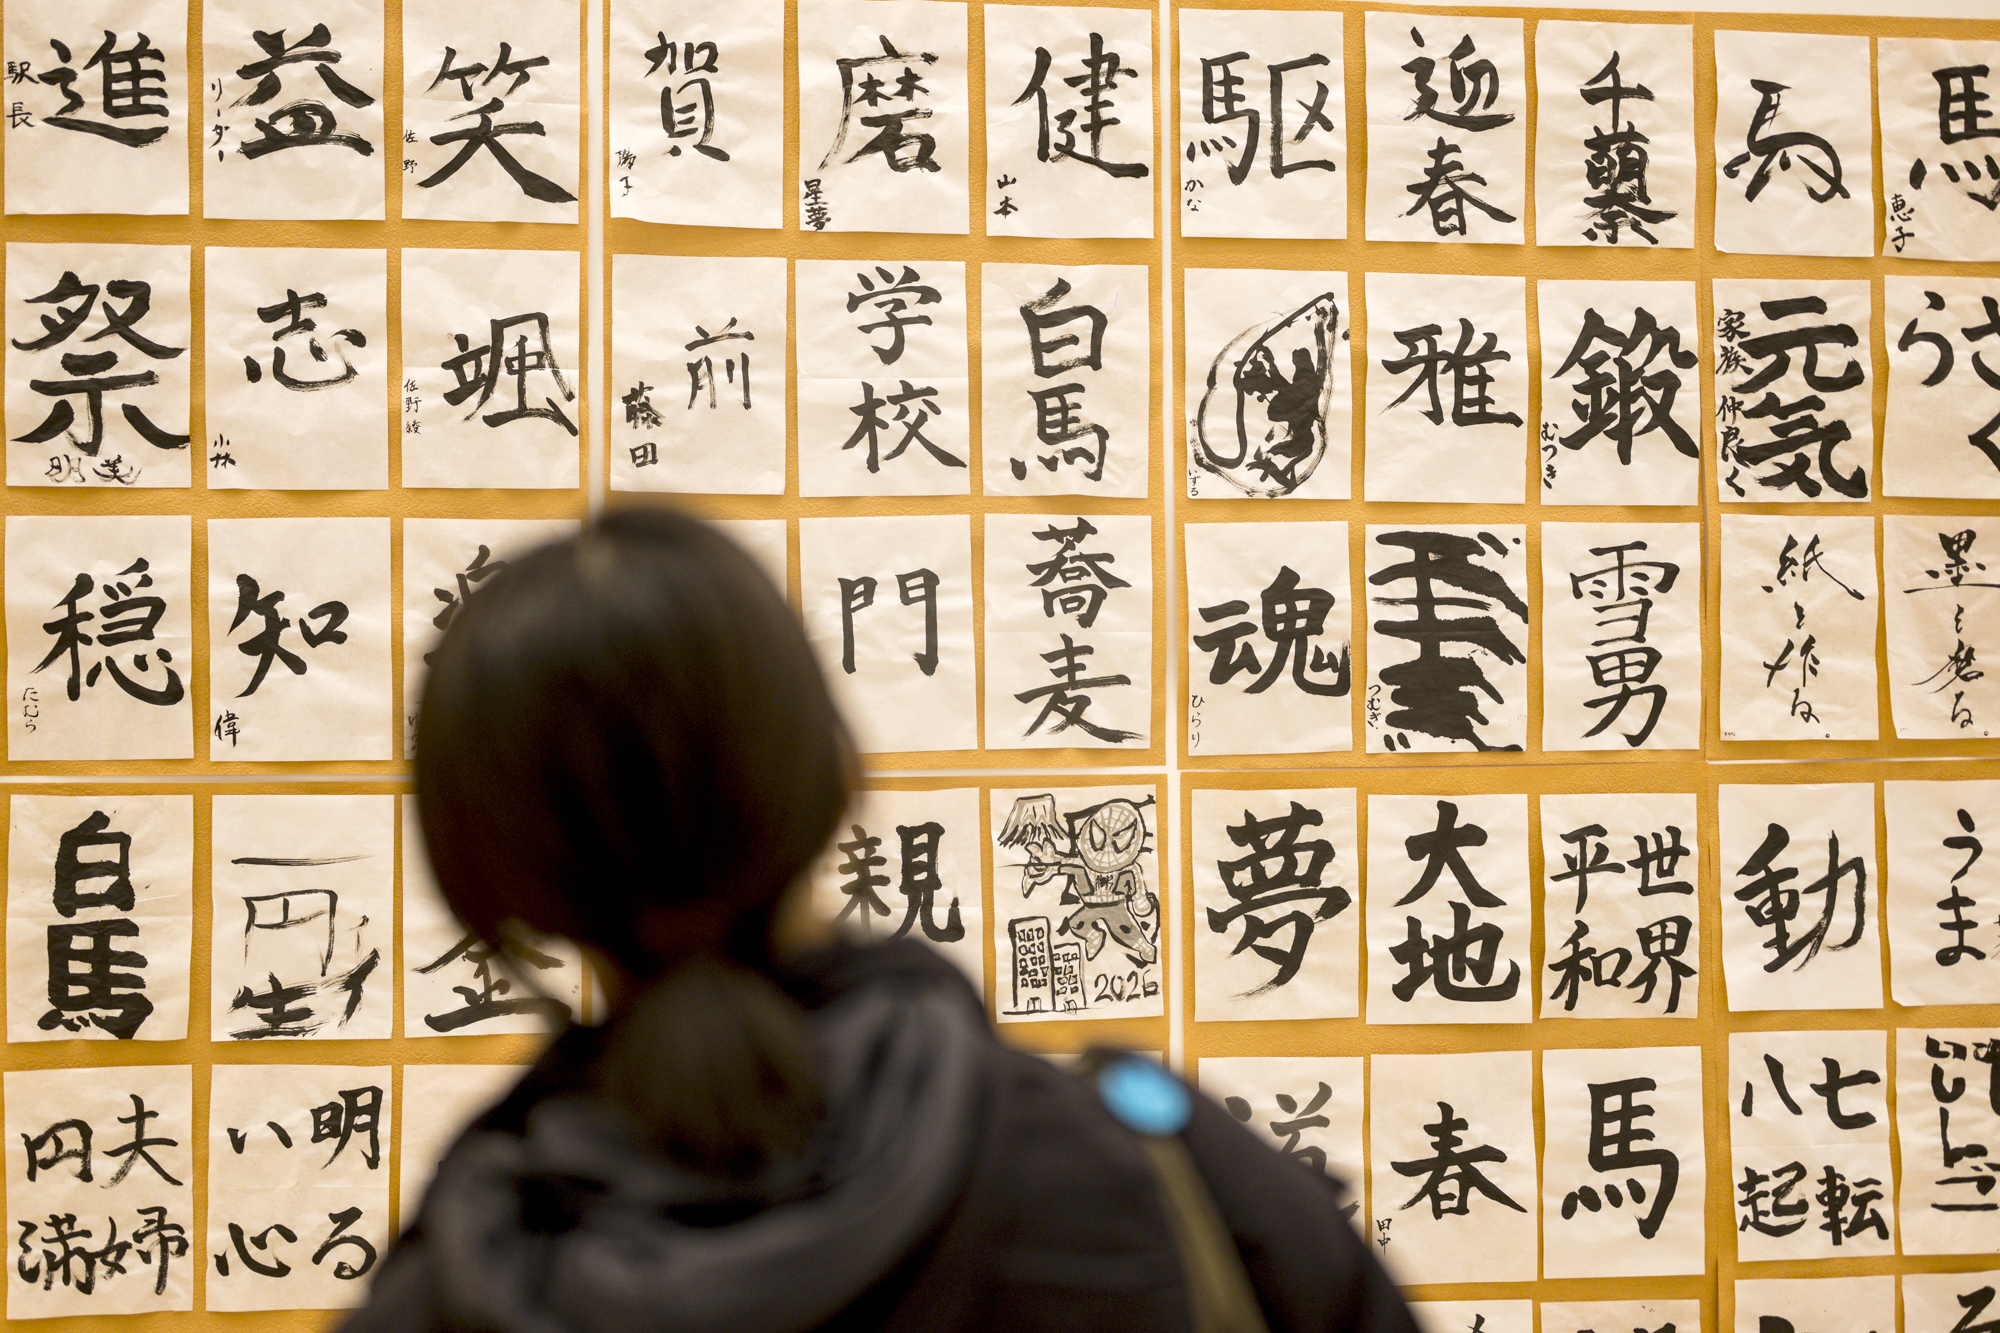 進
駅長
益
リーダー
笑
佐野
賀
陽子
磨
星夢
健
山本
駆
かな
迎春
千萌
馬
馬
恵子
祭
明美
志
小林
颯
佐野綾
前
藤田
学校
白馬
いずる
雅
鍛
むつき
元気
家族仲良く
さくら
穏
たむら
知
偉
門
蕎麦
魂
ひらり
つむぎ
雪男
紙と作る。
墨と磨る。
白馬
一円
生
金
親
2026
夢
大地
世界
平和
動
うま
夫婦
円満
明るい
心
道
春
田中
馬
七転
八起